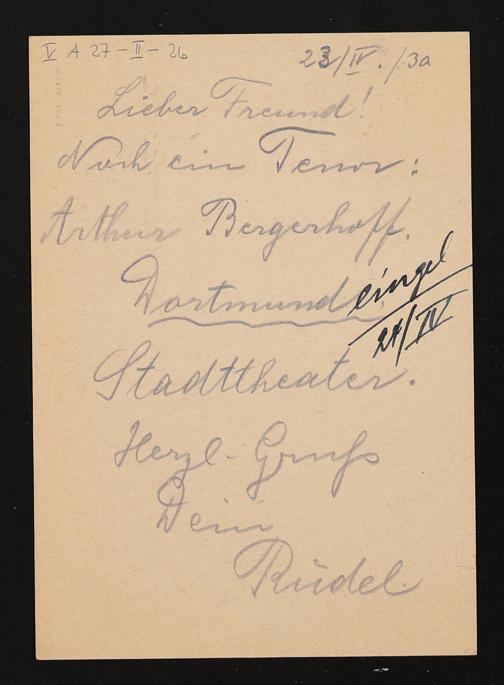 V A 27-II-26
23/IV./30
Lieber Freund!
Noch ein Tenor:
Arthur Bergerhoff.
Dortmund,
eingel
24/IV
Stadttheater.
Herzl. Gruß
Dein
Rüdel.